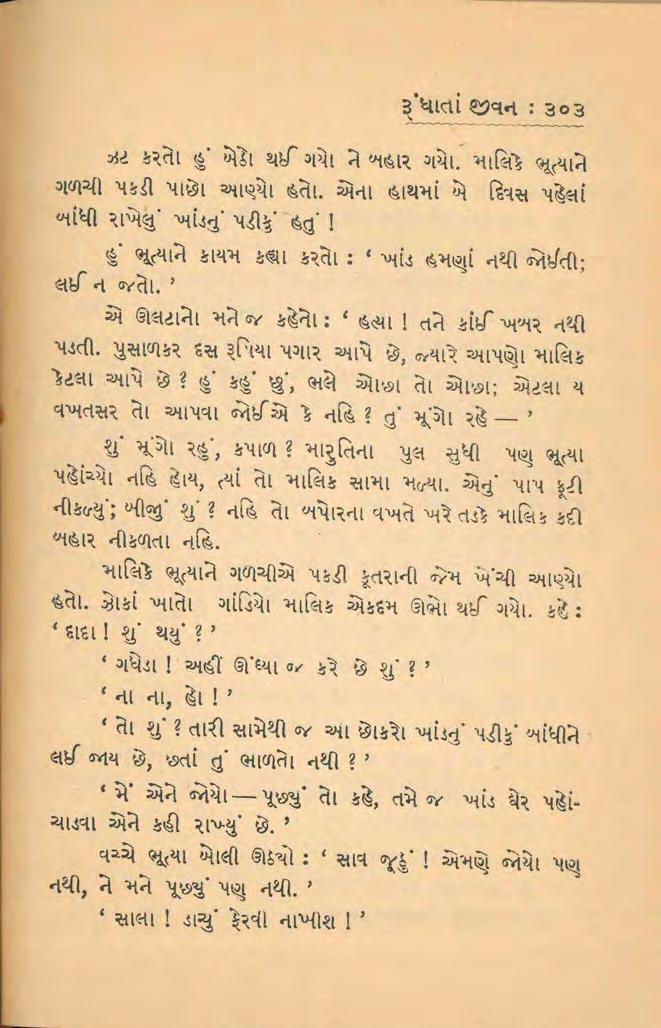 રૂંધાતાં જીવન : ૩૦૩
ઝટ કરતો હું બેઠો થઈ ગયો ને બહાર ગયો. માલિકે ભૂત્યાને
ગળચી પકડી પાછો આણ્યો હતો. એના હાથમાં બે દિવસ પહેલાં
બાંધી રાખેલું ખાંડનું પડીકું હતું !
હું ભૂત્યાને કાયમ કહ્યા કરતો : ‘ ખાંડ હમણાં નથી જોઈતી;
લઈ ન જતો. ’
એ ઊલટાનો મને જ કહેતો : ‘ હત્યા ! તને કાંઈ ખબર નથી
પડતી. પુસાળકર દસ રૂપિયા પગાર આપે છે, જ્યારે આપણો માલિક
કેટલા આપે છે ? હું કહું છું, ભલે ઓછા તો ઓછા; એટલા ય
વખતસર તો આપવા જોઈએ કે નહિ ? તું મૂંગો રહે — ’
શું મૂંગો રહું, કપાળ ? મારુતિના પુલ સુધી પણ ભૂત્યા
પહોંચ્યો નહિ હોય, ત્યાં તો માલિક સામા મળ્યા. એનું પાપ ફૂટી
નીકળ્યું; બીજું શું ? નહિ તો બપોરના વખતે ખરે તડકે માલિક કદી
બહાર નીકળતા નહિ.
માલિકે ભૂત્યાને ગળચીએ પકડી કૂતરાની જેમ ખેંચી આણ્યો
હતો. ઝોકાં ખાતો ગાંડિયો માલિક એકદમ ઊભો થઈ ગયો. કહે :
‘ દાદા ! શું થયું ? ’
‘ ગધેડા ! અહીં ઊંઘ્યા જ કરે છે શું ? ’
‘ ના ના, હો ! ’
‘ તો શું ? તારી સામેથી જ આ છોકરો ખાંડનું પડીકું બાંધીને
લઈ જાય છે, છતાં તું ભાળતો નથી ? ’
‘ મેં એને જોયો — પૂછ્યું તો કહે, તમે જ ખાંડ ઘેર પહોં-
ચાડવા એને કહી રાખ્યું છે. ’
વચ્ચે ભૂત્યા બોલી ઊઠ્યો : ‘ સાવ જૂઠું ! એમણે જોયો પણ
નથી, ને મને પૂછ્યું પણ નથી. ’
‘ સાલા ! ડાચું ફેરવી નાખીશ ! ’